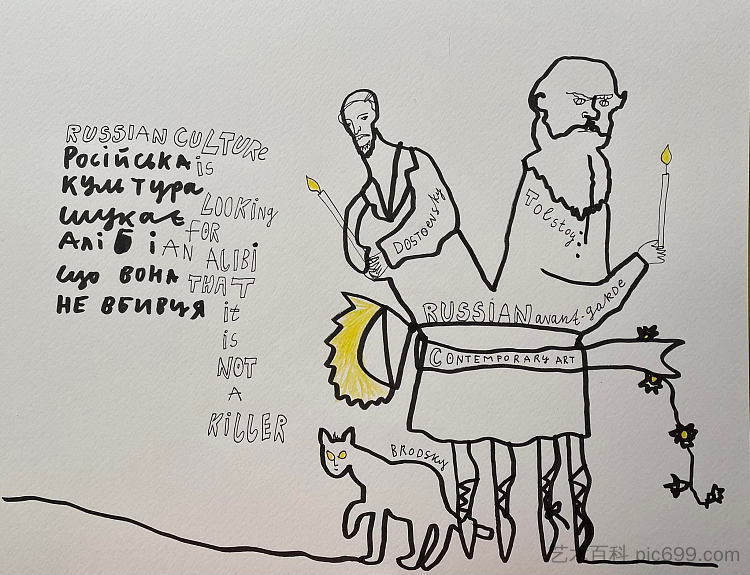 RUSSIAN CULTURE
Російська
is
культура
LOOKING
шукає
FOR
алібі
AN ALIBI
що вона
THAT
не вбивця
it
is
NOT
A
KiLLER
DOSTOEVSKY
Tolstoy
RUSSIAN avant-garde
CONTEMPORARY ART
BRODSKY
艺术百科 pic699.com